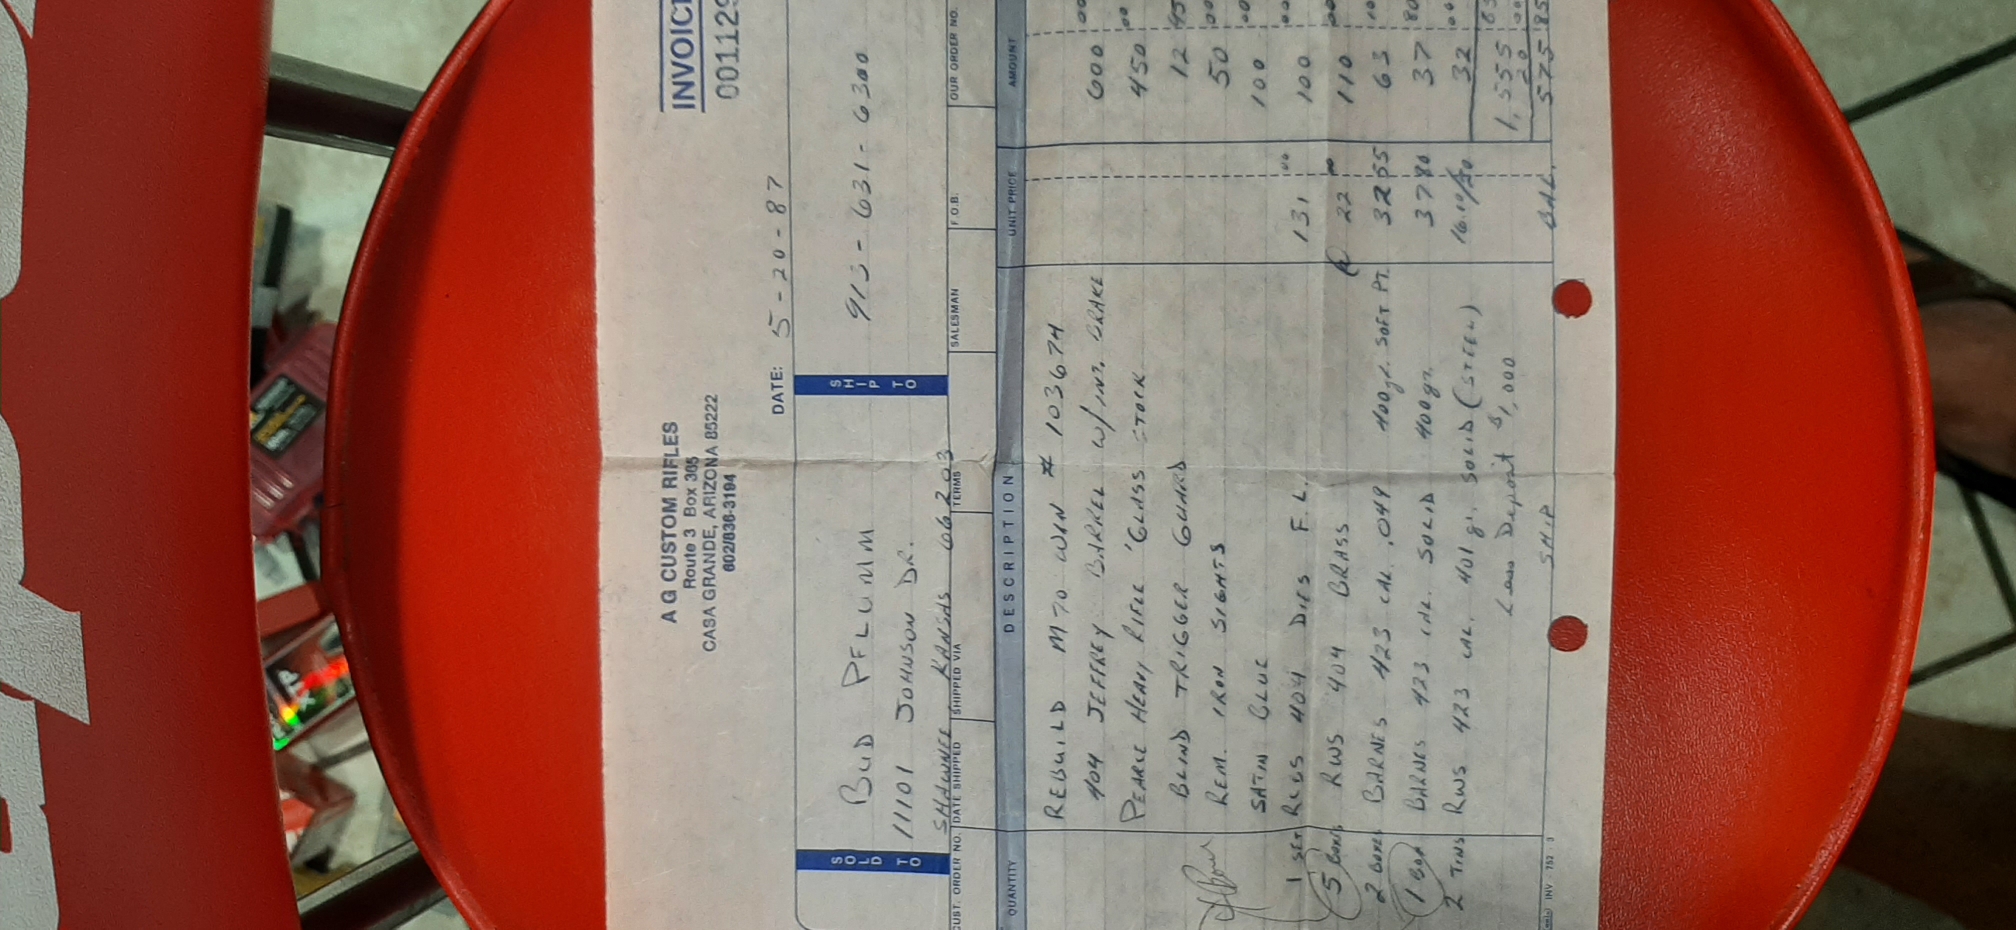 INVOICE
001129
A G CUSTOM RIFLES
Route 3 Box 365
CASA GRANDE, ARIZONA 85222
602/836-3194
DATE: 5-20-87
SOLD TO
BUD PFLUMM
11101 JOHNSON DR.
SHAWNEE, KANSAS 66203
SHIP TO
913-631-6300
CUST. ORDER NO. DATE SHIPPED SHIPPED VIA TERMS SALESMAN F.O.B. OUR ORDER NO.
QUANTITY DESCRIPTION UNIT PRICE AMOUNT
REBUILD M70 WIN # 103674
404 JEFFREY BARREL W/INT. BRAKE 600 00
PEARCE HEAVY RIFLE 'GLASS STOCK 450 00
BLIND TRIGGER GUARD 12 45
REM. IRON SIGHTS 50 00
SATIN BLUE 100 00
1 SET RCBS 404 DIES F.L. 131 00 100 00
5 BOXES RWS 404 BRASS @ 22 00 110 00
2 BOXES BARNES 423 CAL .049 400gr. SOFT PT. 32 55 63 10
1 BOX BARNES 423 CAL. SOLID 400gr. 37 80 37 80
2 TINS RWS 423 CAL. 401 gr. SOLID (STEEL) 32 00
Less Deposit $1,000 1,555
SHIP 20 00
BAL. 575 85
INV 752 3